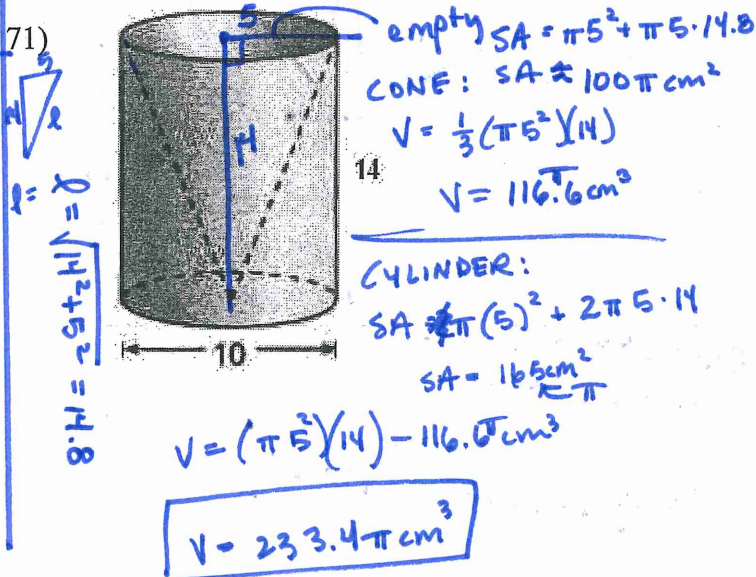 71)
5
empty SA = π5² + π5·14.8
CONE: SA ≈ 100π cm²
V = ⅓(π5²)(14)
V = 116.6π cm³
5
14
l
l =
l = √14² + 5² = 14.8
14
14
10
CYLINDER:
SA = π(5)² + 2π5·14
SA = 165cm²
π
V = (π5²)(14) − 116.6π cm³
V = 233.4π cm³